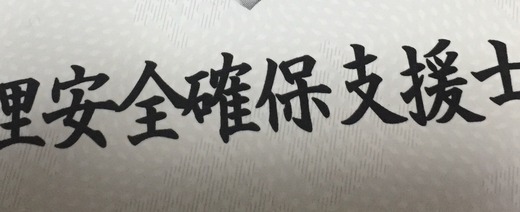 理安全確保支援士